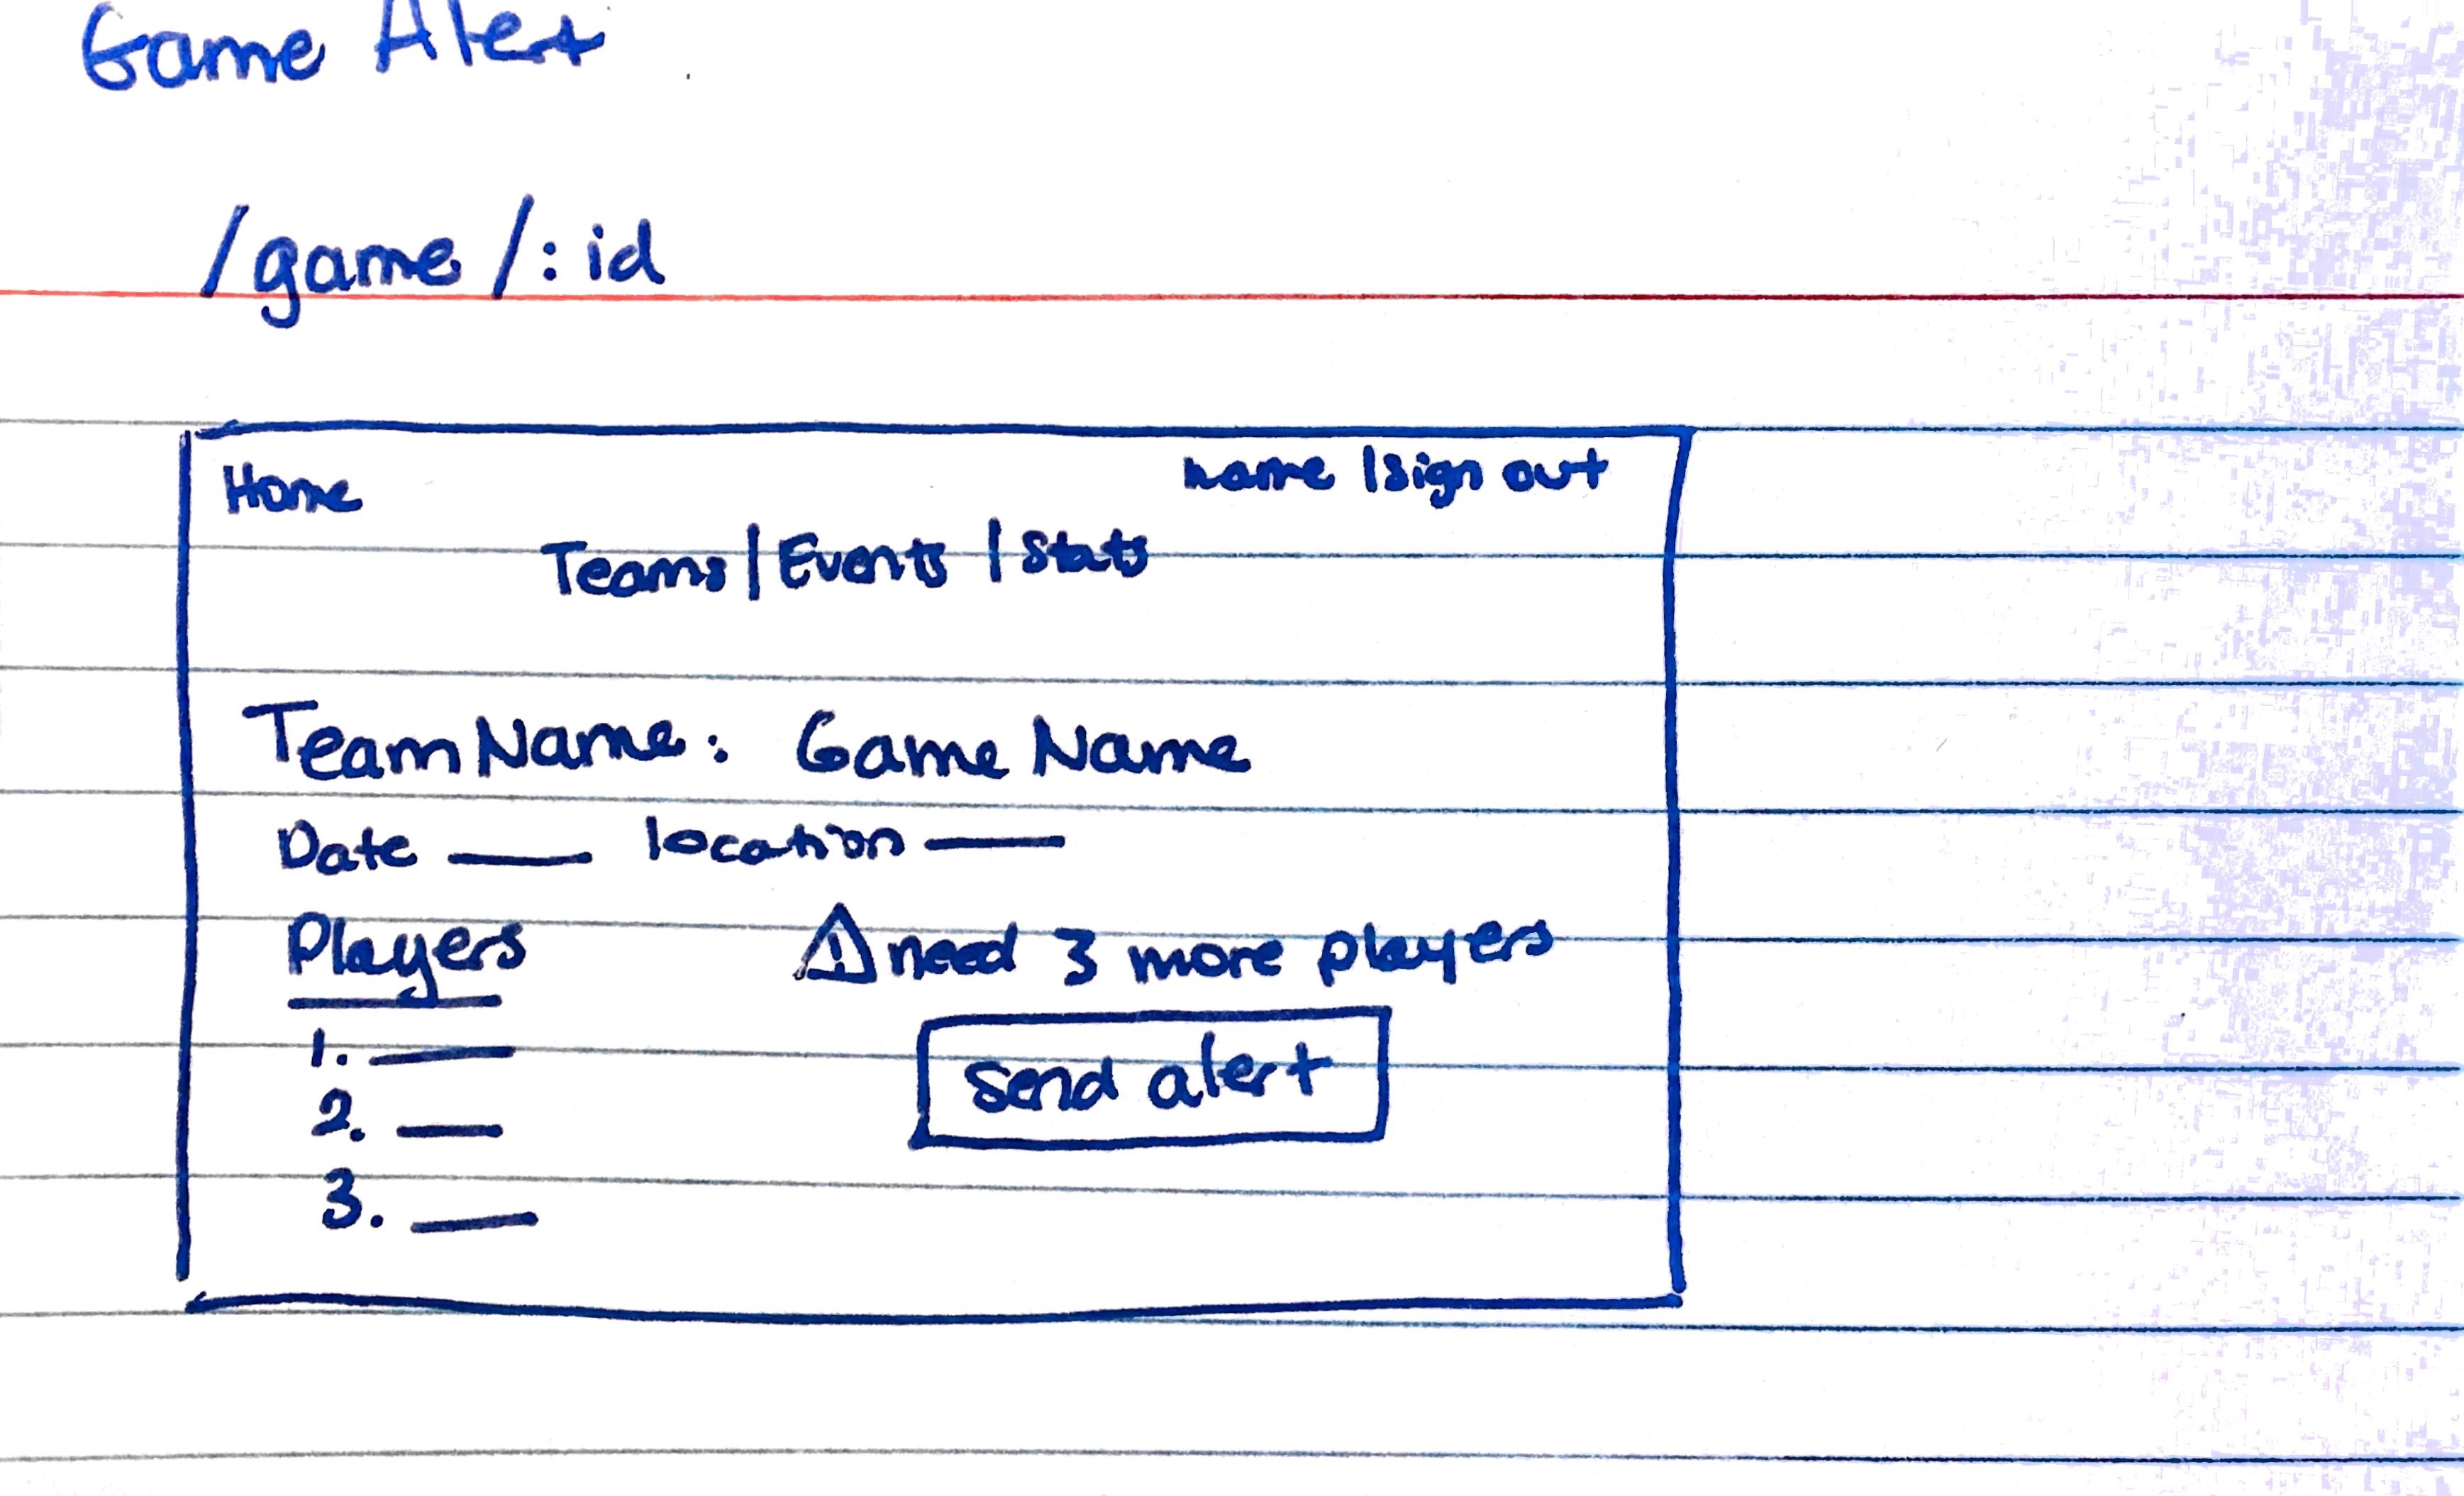 Game Alert
/game/:id
Home name | Sign out
Teams | Events | Stats
Team Name: Game Name
Date ___ location ___
Players ⚠ need 3 more players
1. ___
send alert
2. ___
3. ___